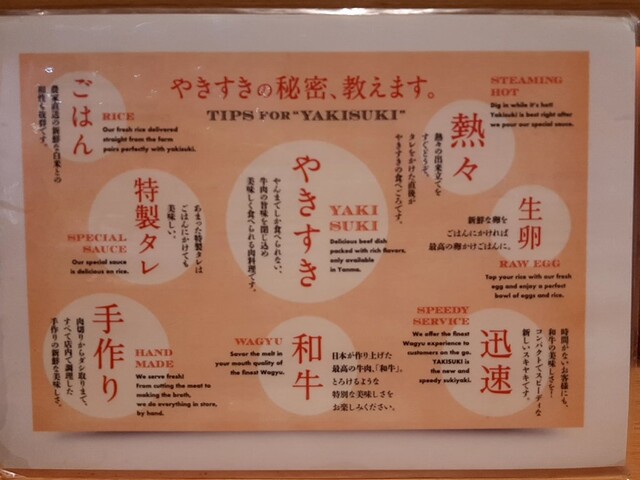 やきすきの秘密、教えます。
TIPS FOR "YAKISUKI"
ごはん
RICE
Our fresh rice delivered
straight from the farm
pairs perfectly with yakisuki.
農家直送の新鮮な白米との
相性も抜群です。
STEAMING
HOT
Dig in while it's hot!
Yakisuki is best right after
we pour our special sauce.
熱々
熱々の出来立てを
すぐどうぞ。
タレをかけた直後が
やきすきの食べごろです。
特製タレ
SPECIAL
SAUCE
Our special sauce
is delicious on rice.
あまった特製タレは
ごはんにかけても
美味しい。
やきすき
YAKI
SUKI
Delicious beef dish
packed with rich flavors,
only available
in Yanma.
やんまでしか食べられない、
牛肉の旨味を閉じ込め
美味しく食べられる肉料理です。
生卵
新鮮な卵を
ごはんにかければ
最高の卵かけごはんに。
RAW EGG
Top your rice with our fresh
egg and enjoy a perfect
bowl of eggs and rice.
手作り
HAND
MADE
We serve fresh!
From cutting the meat to
making the broth,
we do everything in store,
by hand.
肉切りからダシ取りまで、
すべて店内で調理した
手作りの新鮮な美味しさ。
WAGYU
Savor the melt in
your mouth quality of
the finest Wagyu.
和牛
日本が作り上げた
最高の牛肉、「和牛」。
とろけるような
特別な美味しさを
お楽しみください。
SPEEDY
SERVICE
We offer the finest
Wagyu experience to
customers on the go.
YAKISUKI is
the new and
speedy sukiyaki.
迅速
時間がないお客様にも、
和牛の美味しさを!
コンパクトでスピーディな
新しいスキヤキです。